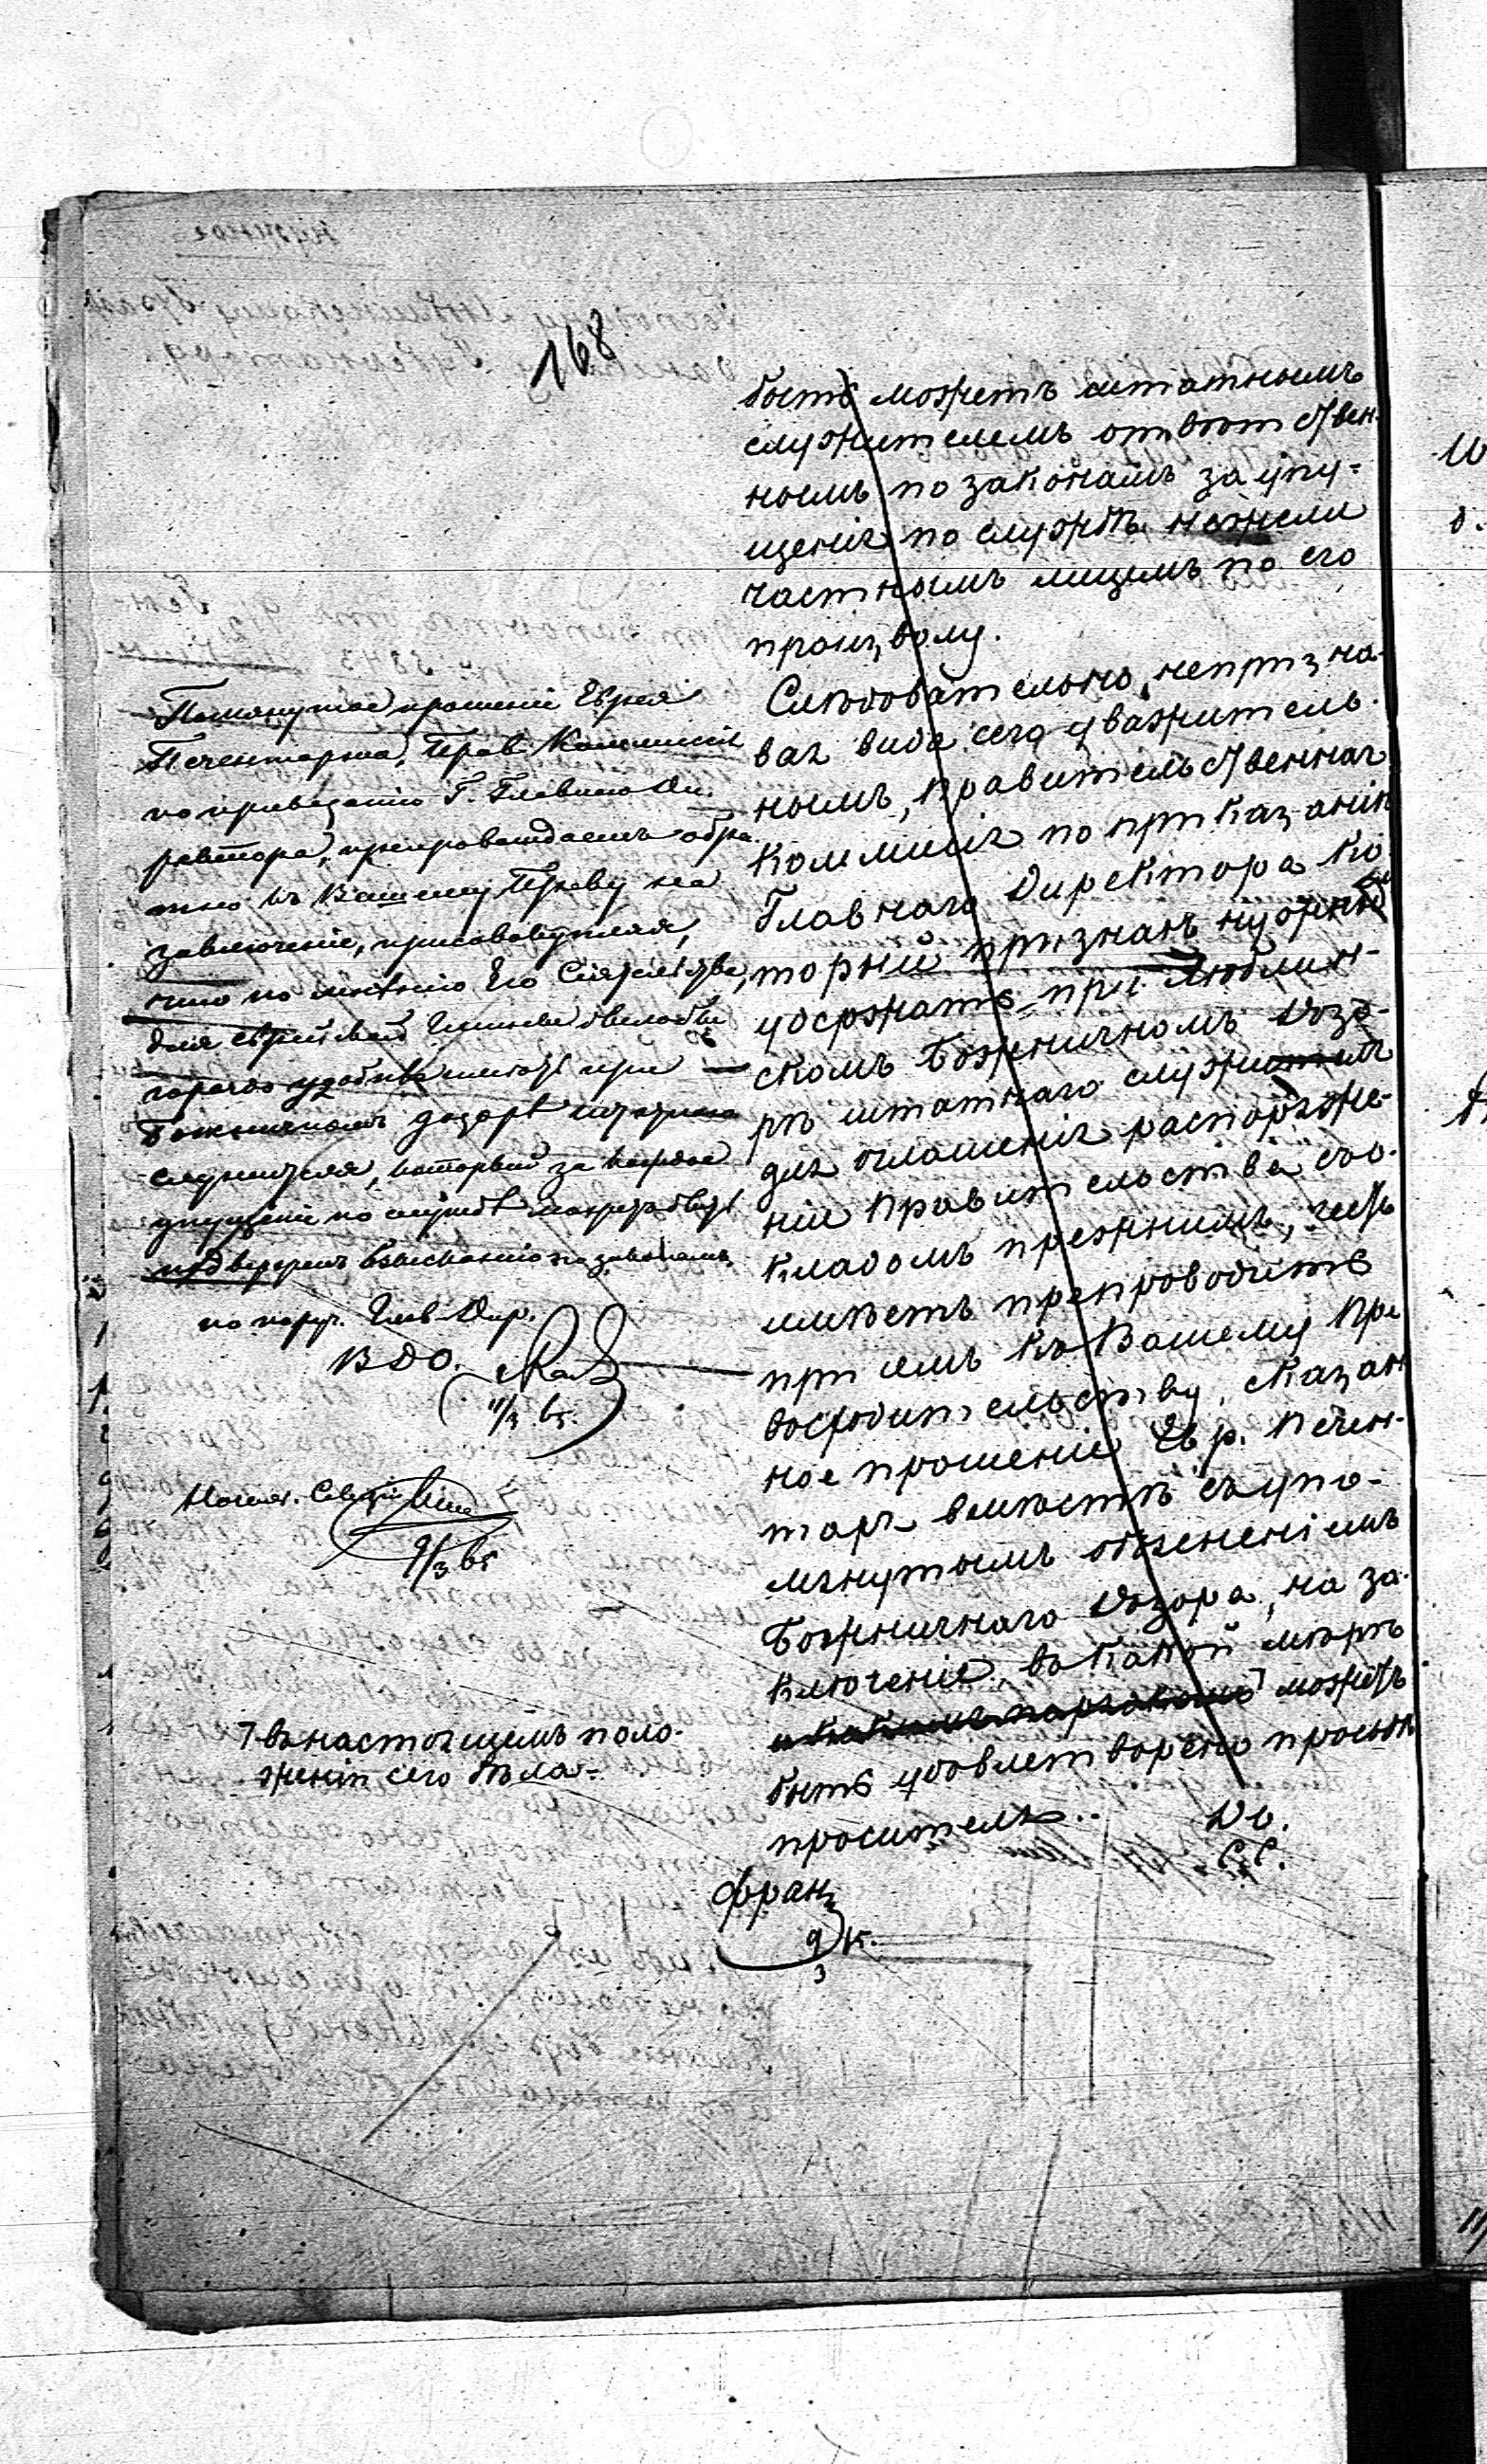 168
быть можетъ штатнымъ
служителемъ отвѣтствен-
нымъ по законамъ за упу-
щенія по службѣ нежели
частнымъ лицемъ по его
произволу.
Слѣдовательно, непризна-
вая вида сего уважитель-
нымъ, правительственная
Коммисія по приказанію
Главнаго Директора ко-
торый признанъ нужнымъ
удержать при Люблин-
скомъ Божничномъ Дозо-
рѣ штатнаго служителя
для оглашенія распоряже-
ній правительства съ о-
кладомъ прежнимъ, честь
имѣетъ препроводить
при семъ къ Вашему Пре-
восходительству, сказан-
ное прошеніе Евр. Печен-
таря вмѣстѣ съ упо-
мянутымъ объясненіемъ
Божничнаго Дозора, на за-
ключеніе, въ какой мѣрѣ
и какимъ порядкомъ можетъ
быть удовлетворена просьба
просителя.
До.
С. С.
Франц
9/3 65.
Помянутое прошеніе Еврея
Печентарша, Прав. Коммисія
по приказанію Г. Главнаго Ди-
ректора, препровождаетъ обра-
тно къ Вашему Прев. на
заключеніе, присовокупляя,
что по мнѣнію Его Сіятельства,
для еврейской
гораздо удобнѣе имѣть при
Божничномъ дозорѣ штатнаго
служителя, который за каждое
упущеніе по службѣ
подвергнутъ взысканію по законамъ
по поруч. Глав. Дир.
В Д О.
11/3 65.
Началь. Секціи
9/3 65
въ настоящемъ поло-
женіи сего дѣла